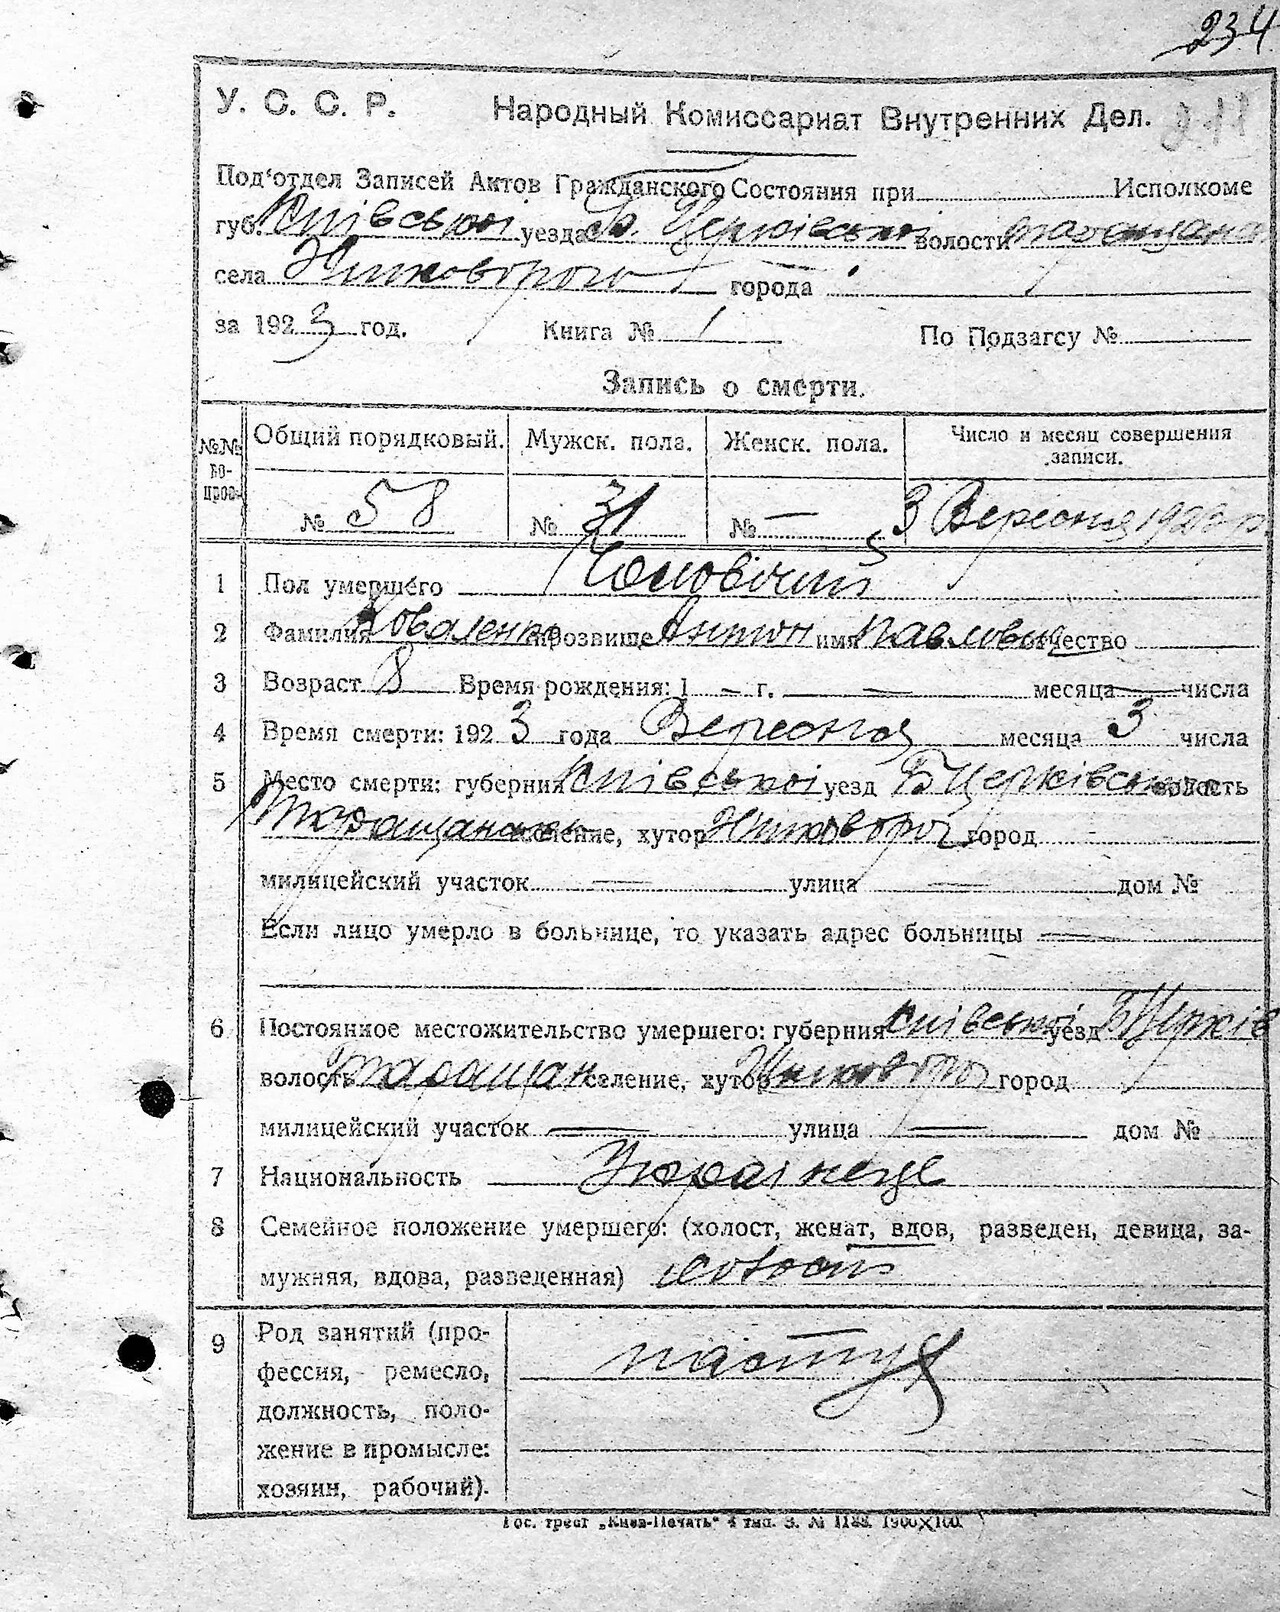 234
У. С. С. Р. Народный Комиссариат Внутренних Дел. 211
Под'отдел Записей Актов Гражданского Состояния при Исполкоме
губ. Київської уезда Б. Церківської волости Таращанс
села города
за 1923 год. Книга № 1 По Подзагсу №
Запись о смерти.
№№ во-прос. Общий порядковый. Мужск. пола. Женск. пола. Число и месяц совершения записи.
№ 58 № 31 № — 3 Вересня 1923 р.
1 Пол умершего Чоловічий
2 Фамилия Коваленко прозвище Антон имя Павлович отчество
3 Возраст 8 Время рождения: 1 — г. — месяца — числа
4 Время смерти: 1923 года Вересня месяца 3 числа
5 Место смерти: губерния Київської уезд Б Церківської волость
Таращанської селение, хутор город
милицейский участок — улица — дом №
Если лицо умерло в больнице, то указать адрес больницы —
6 Постоянное местожительство умершего: губерния Київської уезд Б Церків
волость Таращан селение, хутор город
милицейский участок — улица — дом №
7 Национальность Українець
8 Семейное положение умершего: (холост, женат, вдов, разведен, девица, за-
мужняя, вдова, разведенная) холост
9 Род занятий (про-
фессия, ремесло,
должность, поло-
жение в промысле:
хозяин, рабочий).
пастух
Гос. трест „Киев-Печать“ 4 тип. З. № 1188. 1900×100.